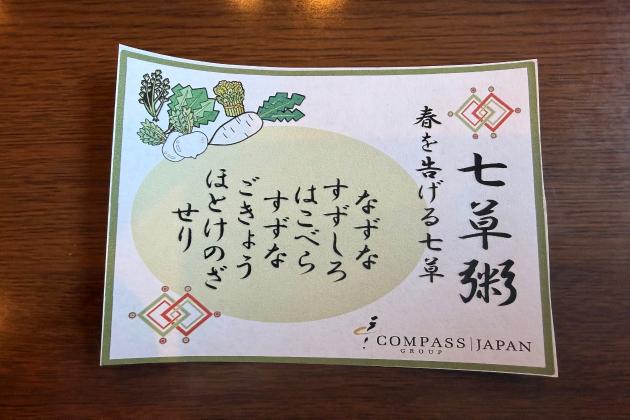 七草粥
春を告げる七草
なずな
すずしろ
はこべら
すずな
ごきょう
ほとけのざ
せり
COMPASS | JAPAN
GROUP